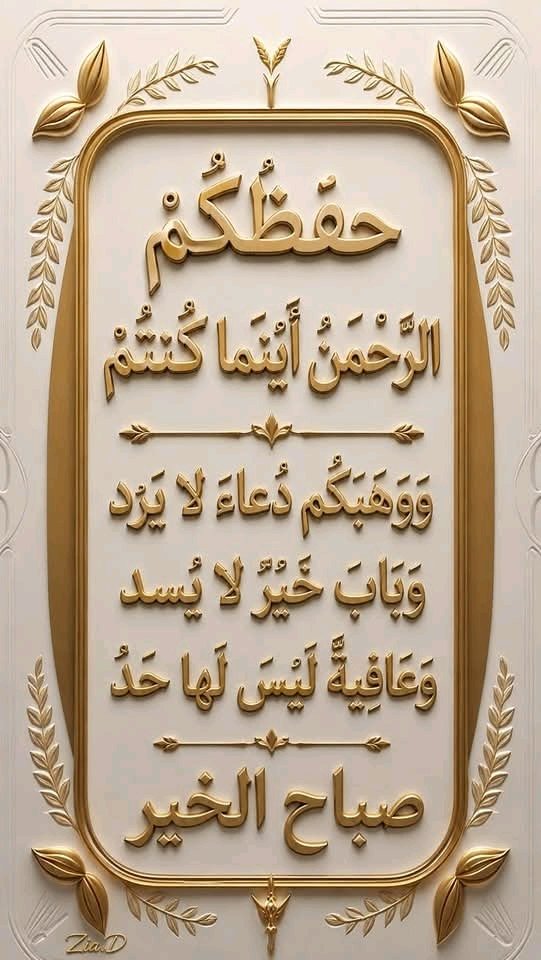 حفَظُكُمْ
الرَّحْمَنُ أَيْنَما كُنتُمْ
وَوَهَبَكُم دُعاءَ لا يَرْد
وَبَابَ خَيْرٌ لا يُسد
وَعَافِيةً لَيْسَ لَها حَدُ
صباح الخير
Zia.D